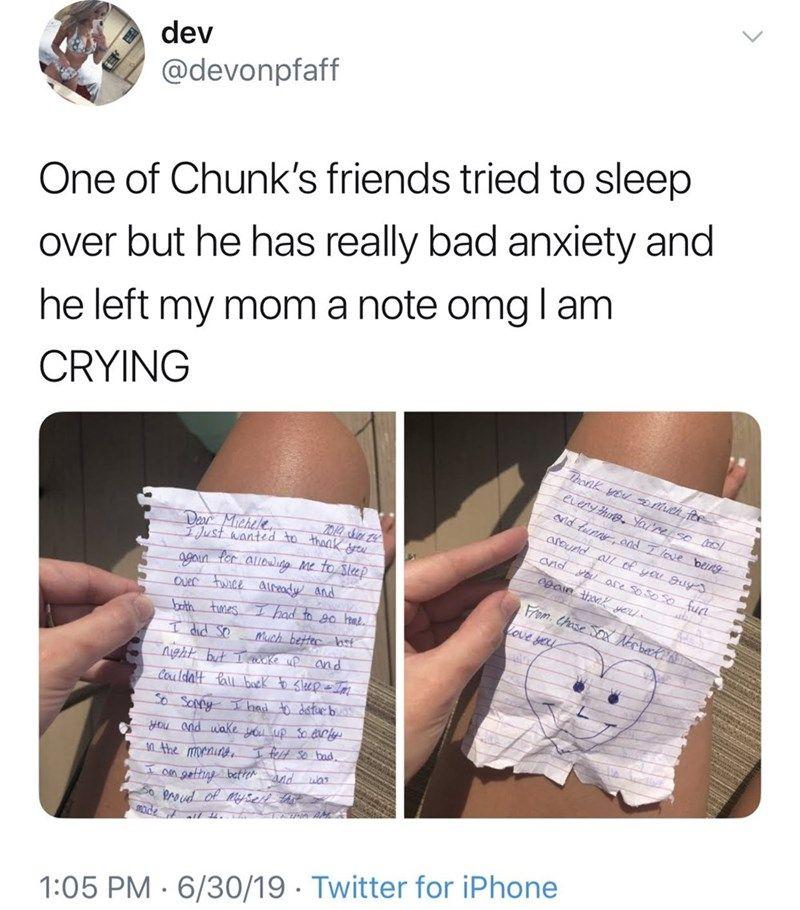 dev
@devonpfaff
One of Chunk's friends tried to sleep
over but he has really bad anxiety and
he left my mom a note omg I am
CRYING
Dear Michele,
I Just wanted to thank you
again for allowing me to sleep
over twice already and
both times I had to go home.
I did so much better last
night but I woke up and
couldn't fall back to sleep. I'm
so sorry I had to disturb
you and wake you up so early
in the morning. I felt so bad.
I am getting better and was
So proud of myself that
made it
Thank you so much for
everything. You're so cool
and funny, and I love being
around all of you guys
and you are so so so fun
again thank you.
From, Chase
Love you
1:05 PM · 6/30/19 · Twitter for iPhone